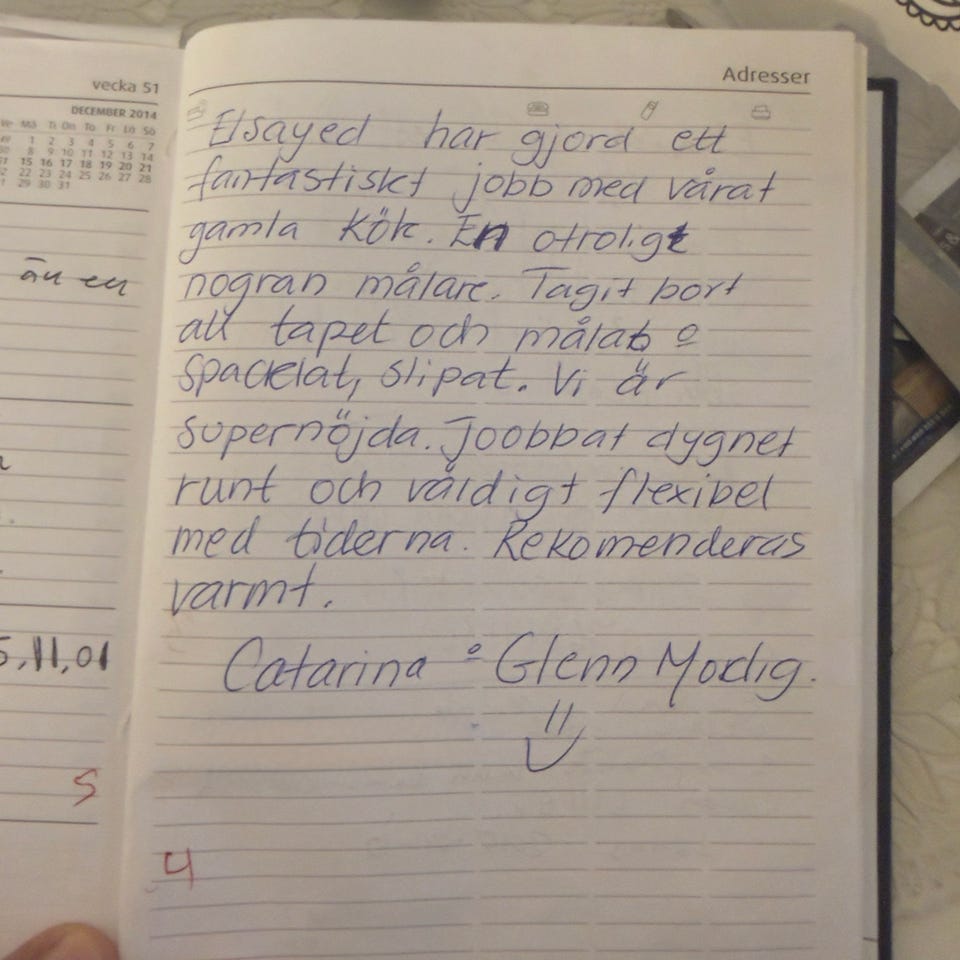 vecka 51
DECEMBER 2014
Ve Må Ti On To Fr Lö Sö
1 2 3 4 5 6 7
8 9 10 11 12 13 14
15 16 17 18 19 20 21
22 23 24 25 26 27 28
29 30 31
än en
5,11,01
5
Adresser
Elsayed har gjord ett
fantastiskt jobb med vårat
gamla kök. En otroligt
nogran målare. Tagit bort
all tapet och målat o
spacklat, slipat. Vi är
supernöjda. Joobbat dygnet
runt och våldigt flexibel
med tiderna. Rekomenderas
varmt.
Catarina o Glenn Modig.
4